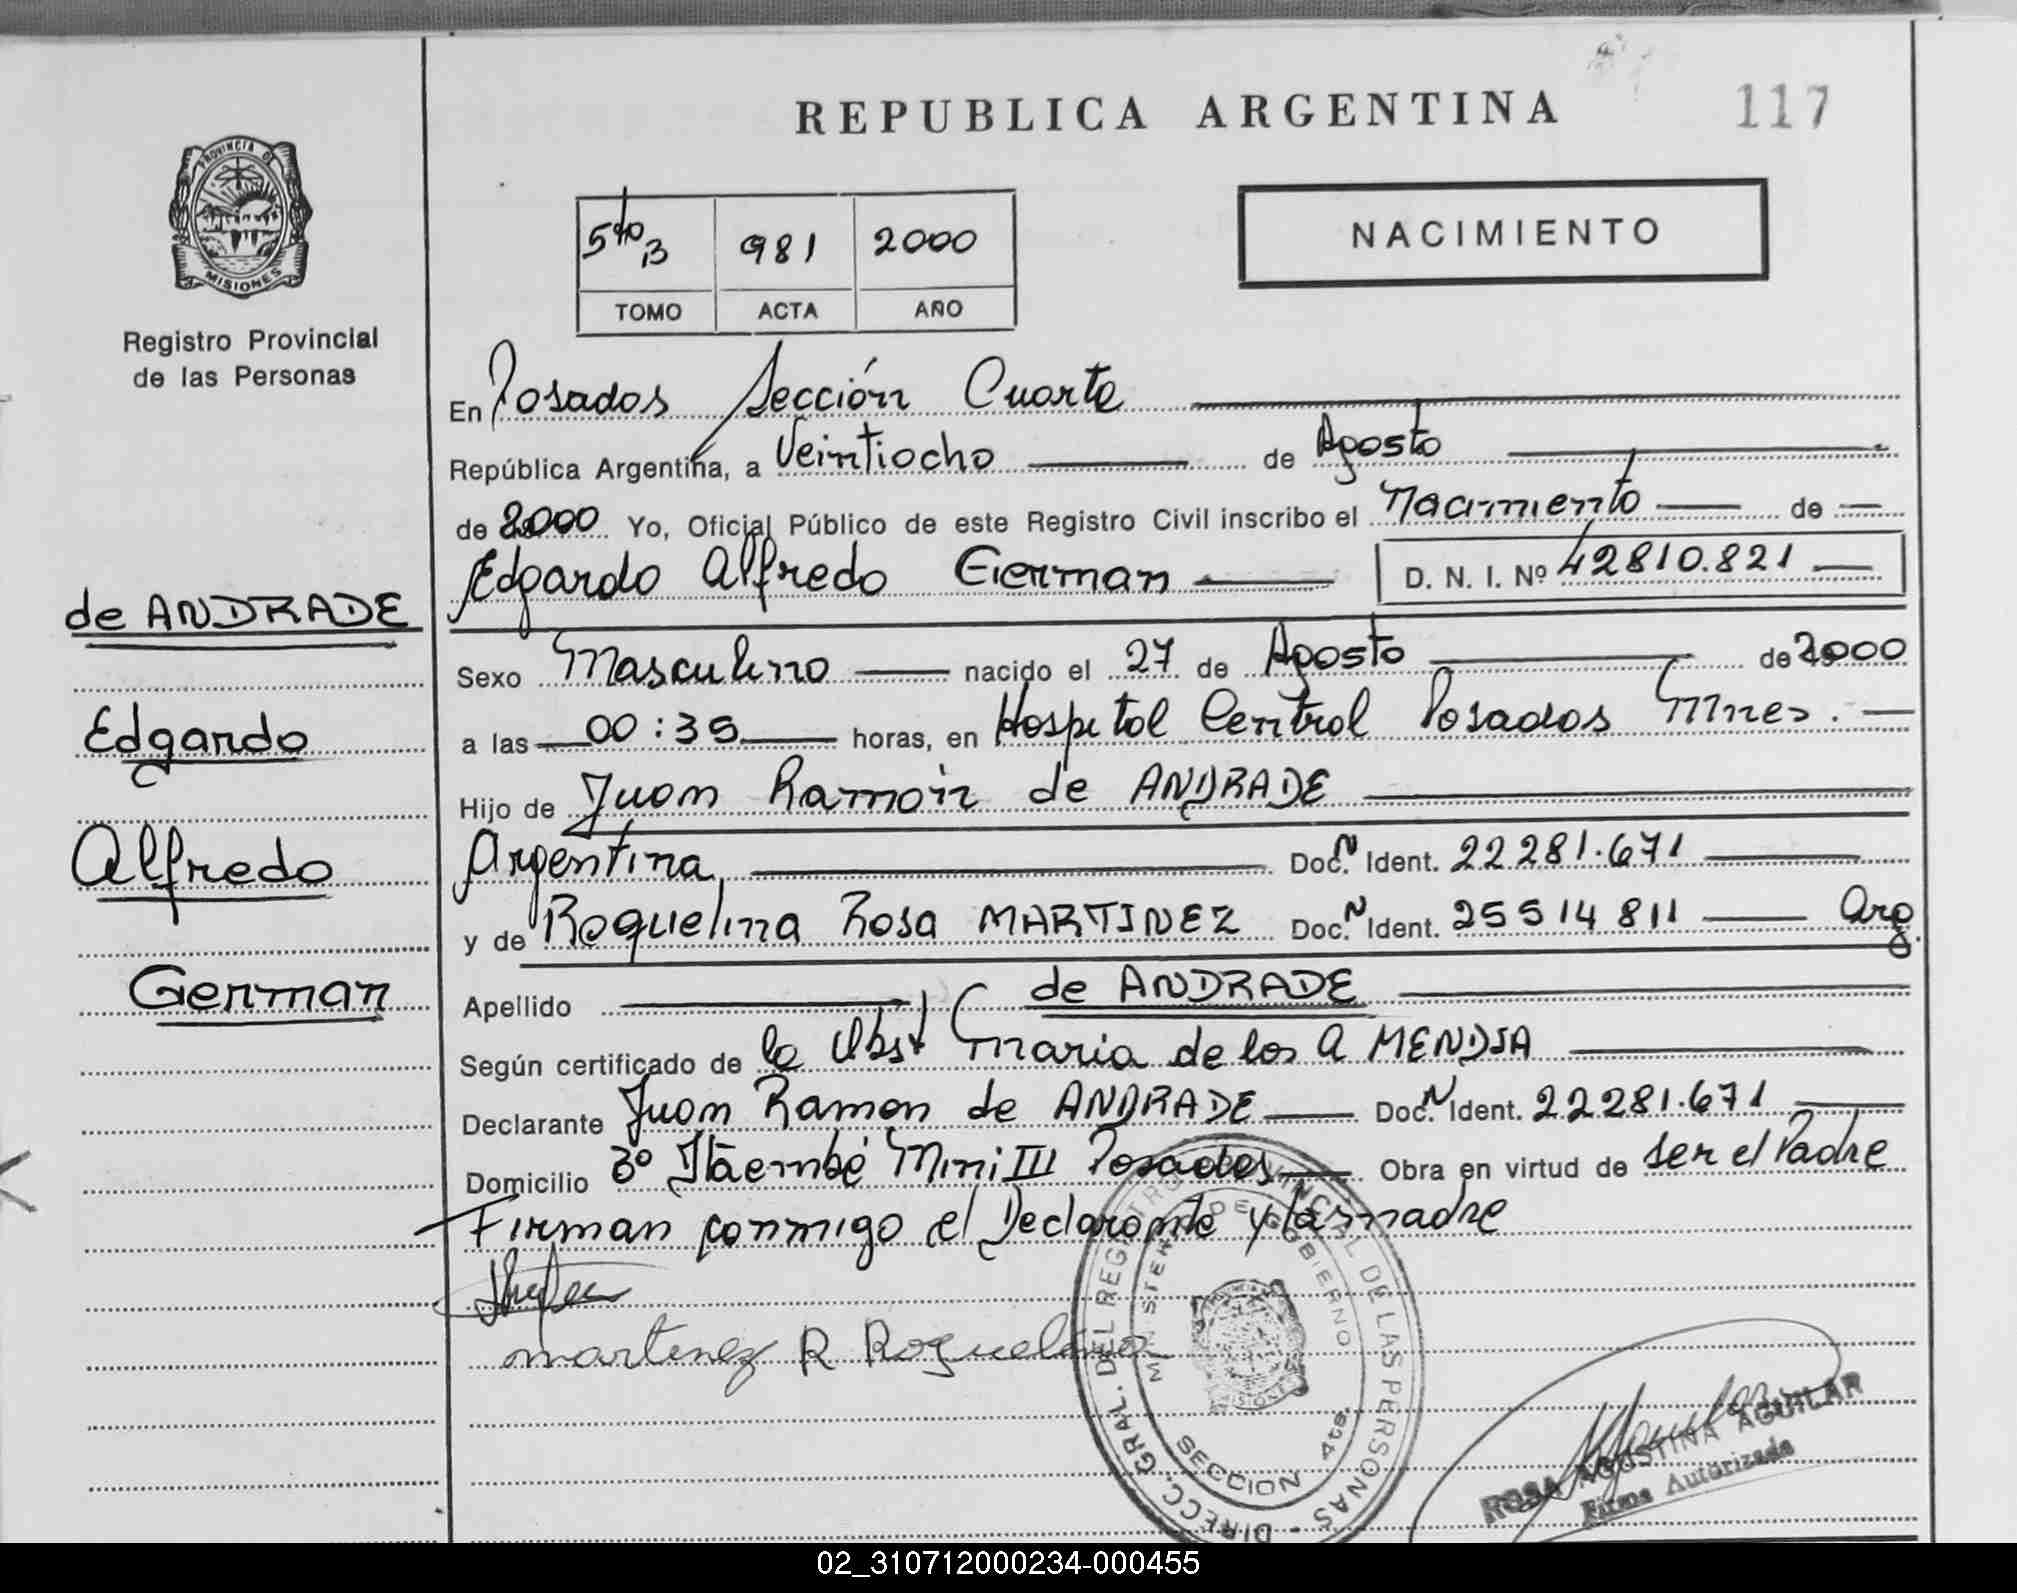 REPUBLICA ARGENTINA
117
PROVINCIA DE
MISIONES
Registro Provincial
de las Personas
5to B 981 2000
TOMO ACTA AÑO
NACIMIENTO
En Posadas Sección Cuarta
República Argentina, a Veintiocho de Agosto
de 2000 Yo, Oficial Público de este Registro Civil inscribo el Nacimiento de
Edgardo Alfredo German D. N. I. Nº 42810.821
de ANDRADE
Edgardo
Alfredo
German
Sexo Masculino nacido el 27 de Agosto de 2000
a las 00:35 horas, en Hospital Central Posadas Mnes.
Hijo de Juan Ramón de ANDRADE
Argentina Doc. N Ident. 22281.671
y de Roquelina Rosa MARTINEZ Doc. N Ident. 25514811 Arg.
Apellido de ANDRADE
Según certificado de la Obst Maria de los A
Declarante Juan Ramon de ANDRADE Doc. N Ident. 22281.671
Domicilio Bº Itaembé Mini III Posadas Obra en virtud de ser el Padre
Firman conmigo el Declarante y la madre
martinez R Roquelina
DIRECC. GRAL. DEL REGISTRO PROVINCIAL DE LAS PERSONAS
MINISTERIO DE GOBIERNO
SECCION 4ta.
ROSA AGUSTINA AGUILAR
Firma Autorizada
02_310712000234-000455